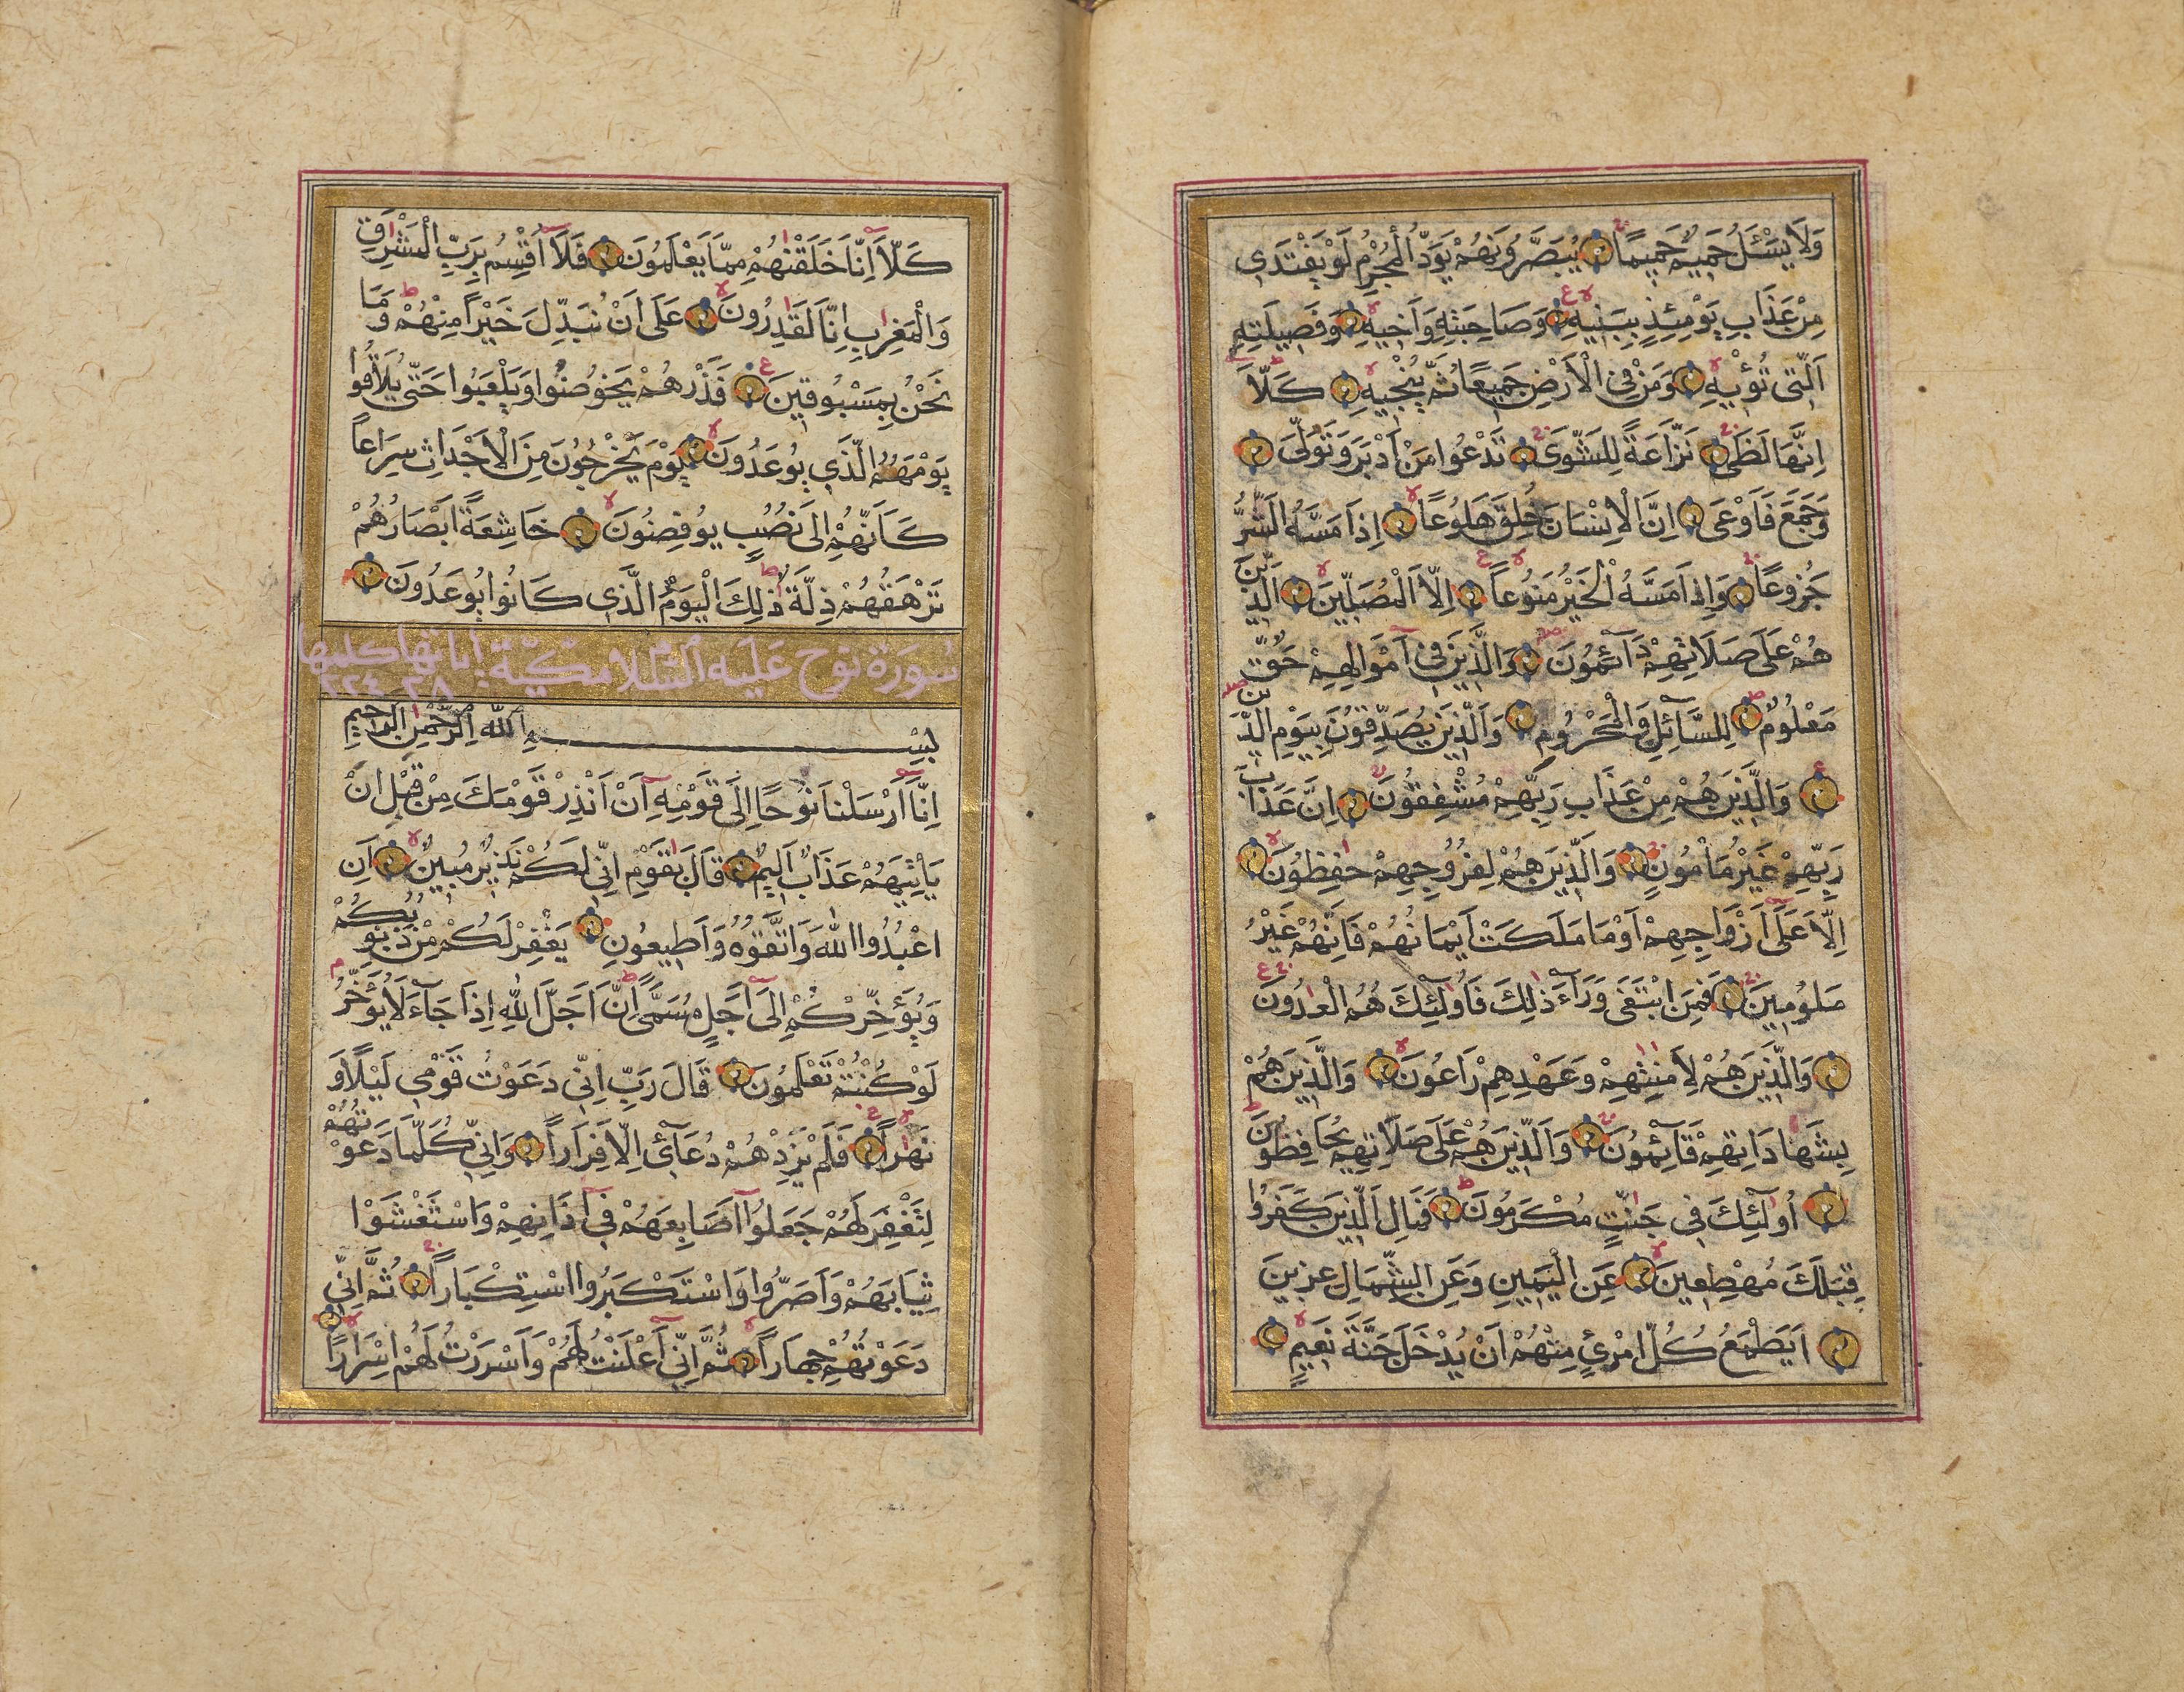 وَلَا يَسْئَلُ حَمِيمٌ حَمِيمًا يُبَصَّرُونَهُمْ يَوَدُّ الْمُجْرِمُ لَوْ يَفْتَدِي
مِنْ عَذَابِ يَوْمِئِذٍ بِبَنِيهِ وَصَاحِبَتِهِ وَأَخِيهِ وَفَصِيلَتِهِ
الَّتِي تُؤْيهِ وَمَنْ فِي الْأَرْضِ جَمِيعًا ثُمَّ يُنْجِيهِ كَلَّا
اِنَّهَا لَظَى نَزَّاعَةً لِلشَّوَى تَدْعُوا مَنْ اَدْبَرَ وَتَوَلَّى
وَجَمَعَ فَاَوْعَى اِنَّ الْاِنْسَانَ خُلِقَ هَلُوعًا اِذَا مَسَّهُ الشَّرُّ
جَزُوعًا وَاِذَا مَسَّهُ الْخَيْرُ مَنُوعًا اِلَّا الْمُصَلِّينَ الَّذِينَ
هُمْ عَلَى صَلَاتِهِمْ دَآئِمُونَ وَالَّذِينَ فِي اَمْوَالِهِمْ حَقٌّ
مَعْلُومٌ لِلسَّآئِلِ وَالْمَحْرُومِ وَالَّذِينَ يُصَدِّقُونَ بِيَوْمِ الدِّينِ
وَالَّذِينَ هُمْ مِنْ عَذَابِ رَبِّهِمْ مُشْفِقُونَ اِنَّ عَذَابَ
رَبِّهِمْ غَيْرُ مَاْمُونٍ وَالَّذِينَ هُمْ لِفُرُوجِهِمْ حٰفِظُونَ
اِلَّا عَلَى اَزْوَاجِهِمْ اَوْ مَا مَلَكَتْ اَيْمَانُهُمْ فَاِنَّهُمْ غَيْرُ
مَلُومِينَ فَمَنِ ابْتَغَى وَرَآءَ ذٰلِكَ فَاُولٰئِكَ هُمُ الْعٰدُونَ
وَالَّذِينَ هُمْ لِاَمٰنٰتِهِمْ وَعَهْدِهِمْ رَاعُونَ وَالَّذِينَ هُمْ
بِشَهَادَاتِهِمْ قَآئِمُونَ وَالَّذِينَ هُمْ عَلَى صَلَاتِهِمْ يُحَافِظُونَ
اُولٰئِكَ فِي جَنّٰتٍ مُكْرَمُونَ فَمَالِ الَّذِينَ كَفَرُوا
قِبَلَكَ مُهْطِعِينَ عَنِ الْيَمِينِ وَعَنِ الشِّمَالِ عِزِينَ
اَيَطْمَعُ كُلُّ امْرِئٍ مِنْهُمْ اَنْ يُدْخَلَ جَنَّةَ نَعِيمٍ
كَلَّا اِنَّا خَلَقْنٰهُمْ مِمَّا يَعْلَمُونَ فَلَا اُقْسِمُ بِرَبِّ الْمَشْرِقِ
وَالْمَغْرِبِ اِنَّا لَقٰدِرُونَ عَلَى اَنْ نُبَدِّلَ خَيْرًا مِنْهُمْ وَمَا
نَحْنُ بِمَسْبُوقِينَ فَذَرْهُمْ يَخُوضُوا وَيَلْعَبُوا حَتَّى يُلَاقُوا
يَوْمَهُمُ الَّذِي يُوعَدُونَ يَوْمَ يَخْرُجُونَ مِنَ الْاَجْدَاثِ سِرَاعًا
كَاَنَّهُمْ اِلَى نُصُبٍ يُوفِضُونَ خَاشِعَةً اَبْصَارُهُمْ
تَرْهَقُهُمْ ذِلَّةٌ ذٰلِكَ الْيَوْمُ الَّذِي كَانُوا يُوعَدُونَ
سُورَة نوح عَلَيه السَّلَام مَكِّيَّة اياتها ٢٨ كلمتها ٢٢٤
بِسْمِ اللهِ الرَّحْمٰنِ الرَّحِيمِ
اِنَّا اَرْسَلْنَا نُوحًا اِلَى قَوْمِهِ اَنْ اَنْذِرْ قَوْمَكَ مِنْ قَبْلِ اَنْ
يَاْتِيَهُمْ عَذَابٌ اَلِيمٌ قَالَ يٰقَوْمِ اِنِّي لَكُمْ نَذِيرٌ مُبِينٌ اَنِ
اعْبُدُوا اللهَ وَاتَّقُوهُ وَاَطِيعُونِ يَغْفِرْ لَكُمْ مِنْ ذُنُوبِكُمْ
وَيُؤَخِّرْكُمْ اِلَى اَجَلٍ مُسَمًّى اِنَّ اَجَلَ اللهِ اِذَا جَآءَ لَا يُؤَخَّرُ
لَوْ كُنْتُمْ تَعْلَمُونَ قَالَ رَبِّ اِنِّي دَعَوْتُ قَوْمِي لَيْلًا وَ
نَهٰرًا فَلَمْ يَزِدْهُمْ دُعَآئِ اِلَّا فِرَارًا وَاِنِّي كُلَّمَا دَعَوْتُهُمْ
لِتَغْفِرَ لَهُمْ جَعَلُوا اَصَابِعَهُمْ فِي اٰذَانِهِمْ وَاسْتَغْشَوْا
ثِيَابَهُمْ وَاَصَرُّوا وَاسْتَكْبَرُوا اسْتِكْبَارًا ثُمَّ اِنِّي
دَعَوْتُهُمْ جِهَارًا ثُمَّ اِنِّي اَعْلَنْتُ لَهُمْ وَاَسْرَرْتُ لَهُمْ اِسْرَارًا